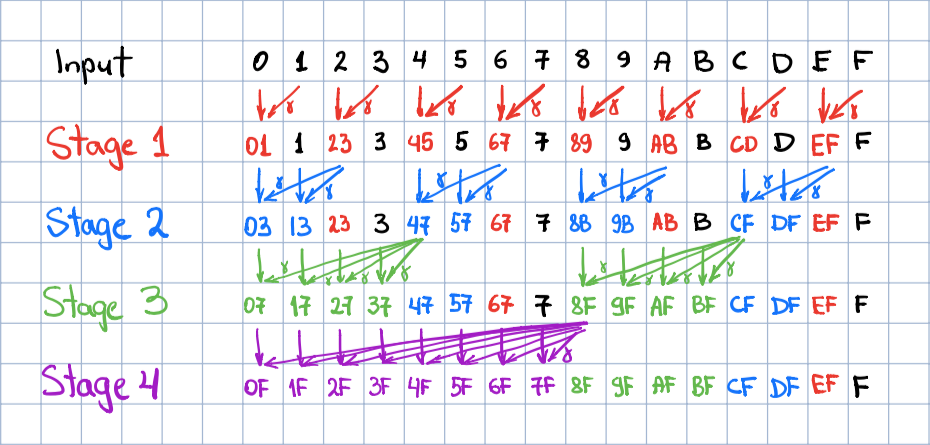 Input 0 1 2 3 4 5 6 7 8 9 A B C D E F
γ γ γ γ γ γ γ γ
Stage 1 01 1 23 3 45 5 67 7 89 9 AB B CD D EF F
γ γ γ γ γ γ γ γ
Stage 2 03 13 23 3 47 57 67 7 8B 9B AB B CF DF EF F
γ γ γ γ γ γ γ γ
Stage 3 07 17 27 37 47 57 67 7 8F 9F AF BF CF DF EF F
γ
Stage 4 0F 1F 2F 3F 4F 5F 6F 7F 8F 9F AF BF CF DF EF F